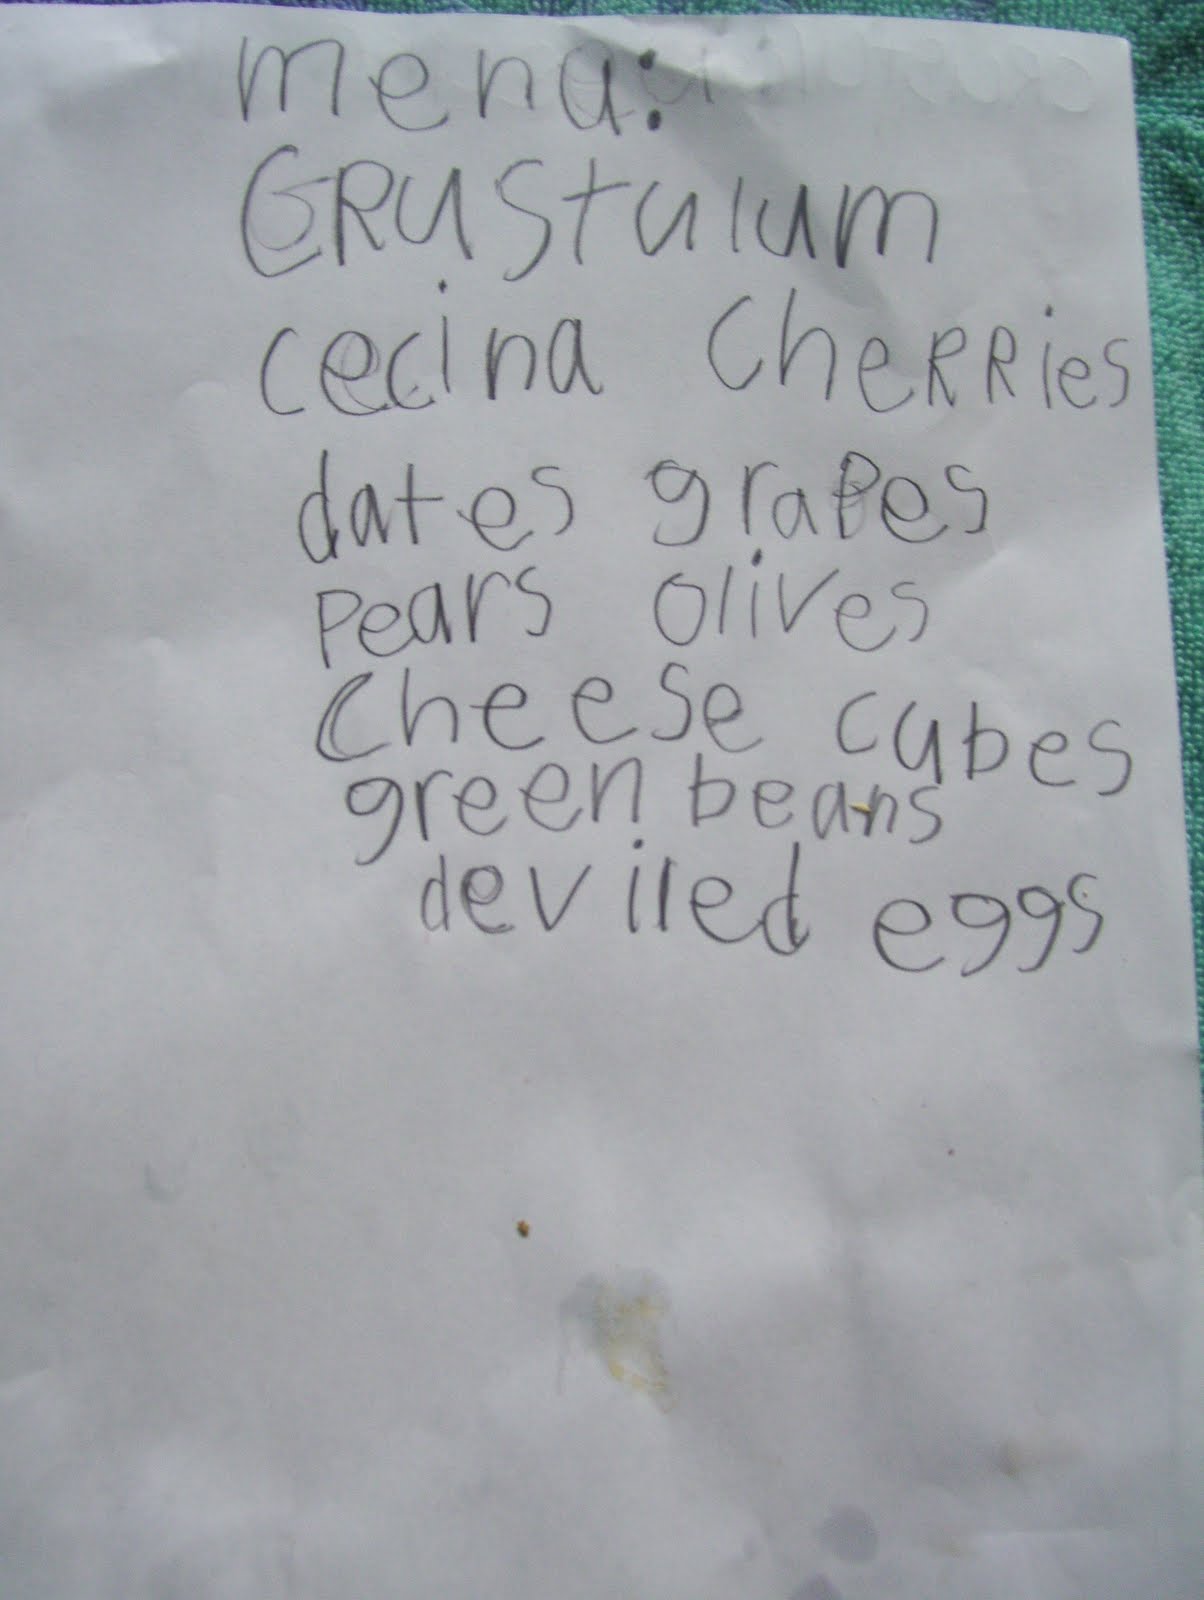 menu:
CRUStulum
cecina CheRRies
dates graPes
Pears Olives
Cheese cubes
green beans
deviled eggs